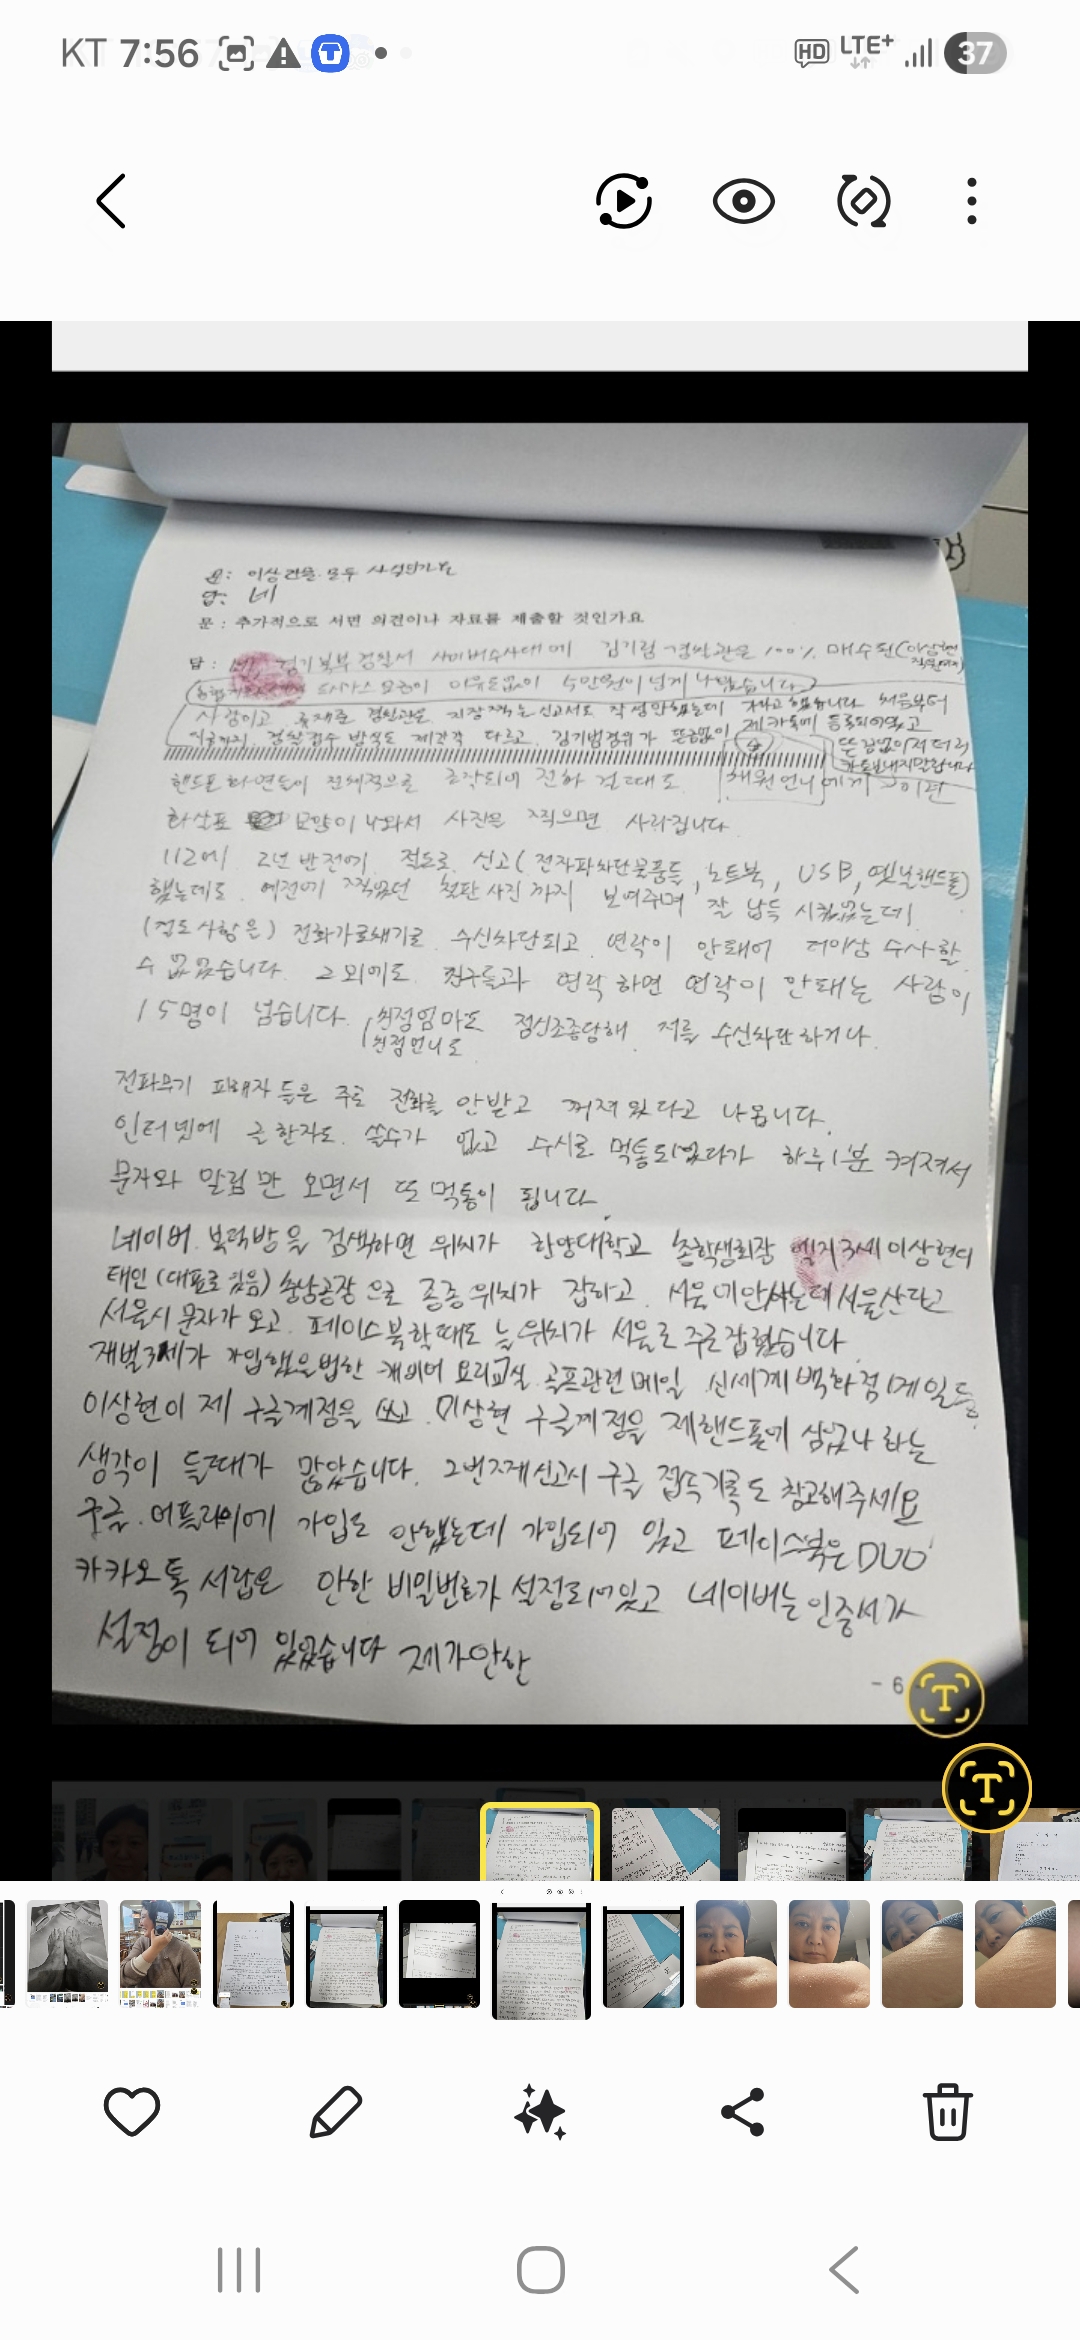 KT 7:56
HD LTE+ 37
문: 이상 진술 모두 사실인가요
답: 네
문 : 추가적으로 서면 의견이나 자료를 제출할 것인가요
답 : 네, 경기북부경찰서 사이버수사대에 김기령 경찰관은 100% 매수된(이상현
도시가스 요금이 이유도없이 5만원이 넘게 나왔습니다
사람이고 경찰관은 지장찍는 신고서도 작성안했는데 가라고 했습니다 처음부터
지금까지 경찰접수 방식도 제각각 다르고. 김기범경위가 뜬금없이 제카톡에 등록되어있고
뜬금없이 저더러
카톡보내지말랍니다
핸드폰 화면들이 전체적으로 조작되며 전화 걸때도 채원언니에게
화살표 모양이 나와서 사진을 찍으면 사라집니다
112에 2년 반전에 절도로 신고(전자파차단물품들, 노트북, USB, 옛날핸드폰)
했는데도 예전에 찍었던 사진까지 보여주며 잘 납득 시켰었는데
(절도사항은) 전화가로채기로 수신차단되고 연락이 안돼어 더이상 수사할
수 없었습니다. 그외에도 친구들과 연락하면 연락이 안돼는 사람이
15명이 넘습니다. 친정엄마도 정신조종당해 저를 수신차단하거나.
친정언니도
전파무기 피해자 들은 주로 전화를 안받고 꺼져있다고 나옵니다.
인터넷에 글 한자도. 쓸수가 없고 수시로 먹통되었다가 하루1분 켜져서
문자와 알림만 오면서 또 먹통이 됩니다.
네이버. 부럭방을 검색하면 위치가 한양대학교 총학생회장 엘지3세 이상현의
태인(대표로 있음) 충남공장으로 종종 위치가 잡히고 서울에안사는데 서울산다고
서울시 문자가 오고. 페이스북할때도 늘 위치가 서울로 주로잡혔습니다
재벌3세가 가입했을법한 캐비어 요리교실. 골프관련메일 신세계백화점메일등.
이상현이 제 구글계정을 쓰고. 이상현 구글계정을 제핸드폰에 심었나 하는
생각이 들때가 많았습니다. 2번째신고시 구글 접속기록도 참고해주세요
구글. 어플라이에 가입도 안했는데 가입되어 있고 페이스북은 DUO
카카오톡 서랍은 안한 비밀번호가 설정되어있고 네이버는 인증서가
설정이 되어 있었습니다 제가안한
- 6
T
T